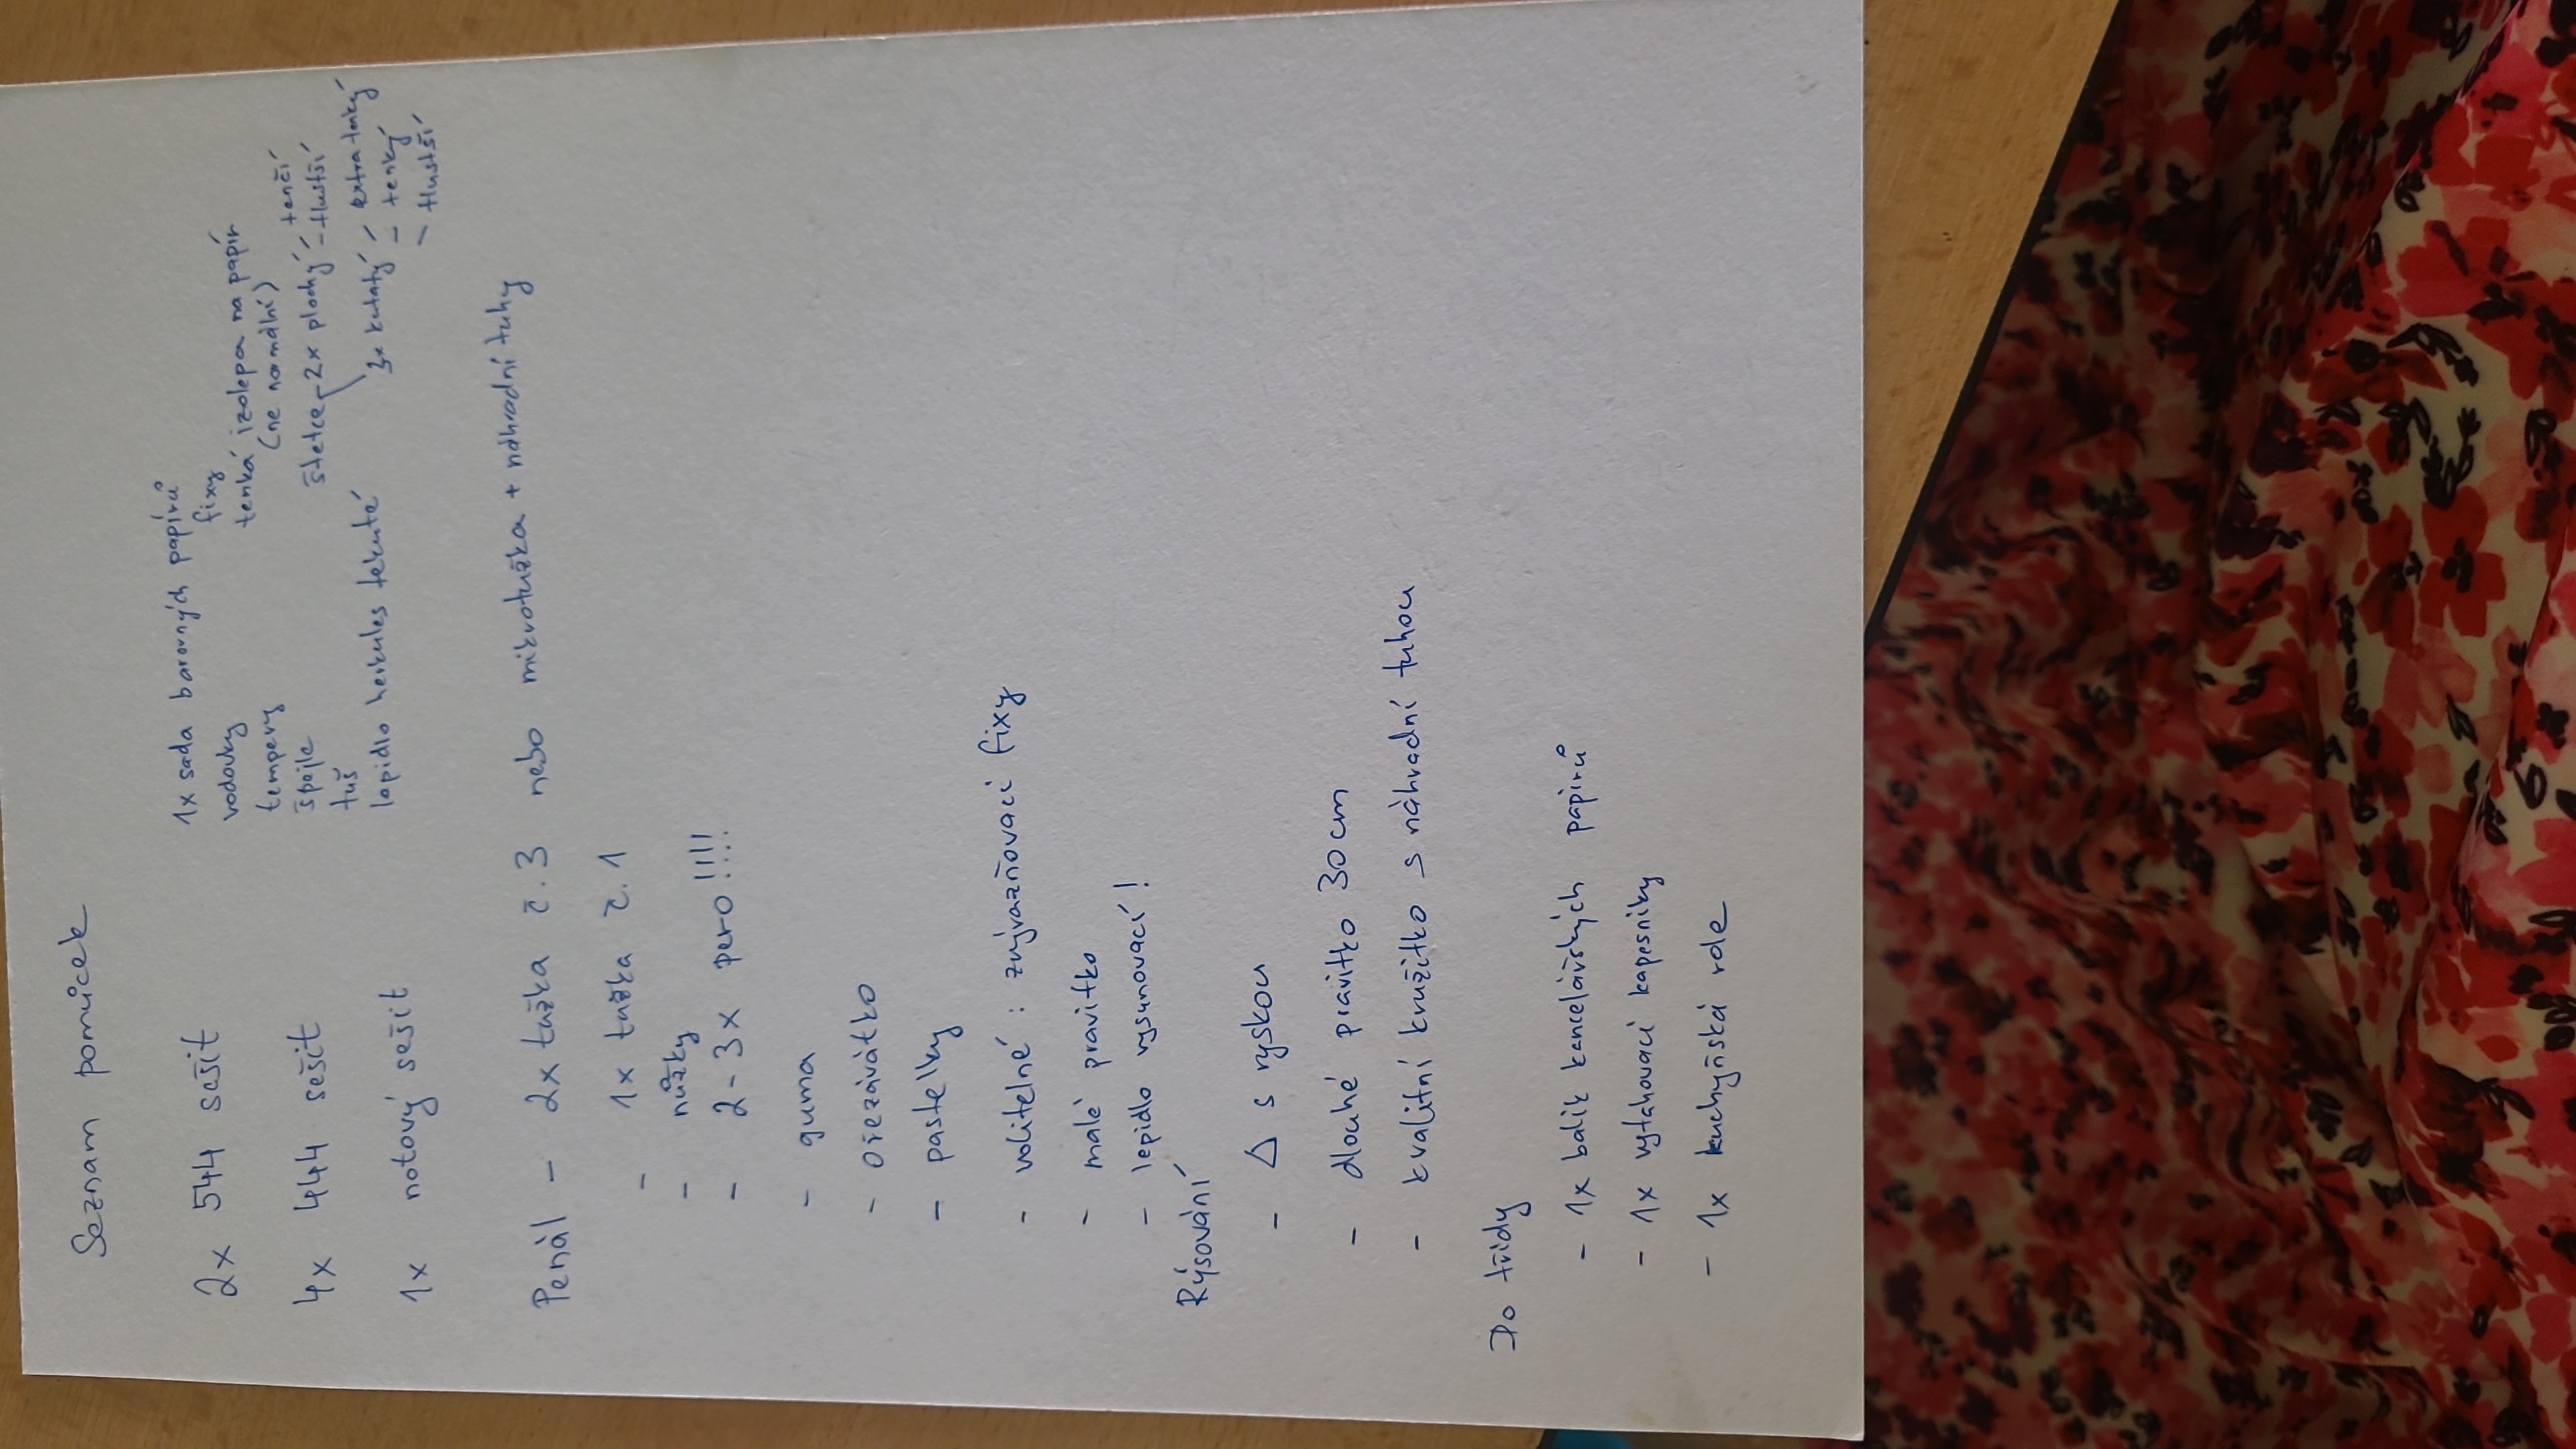 Seznam pomůcek
2x 544 sešit
4x 444 sešit
1x notový sešit
1x sada barevných papírů
vodovky
fixy
tempery
tenká izolepa na papír
(ne normální)
špejle
štětce - 2x plochý - tenčí
- tlustší
tuš
3x kulatý - extra tenký
- tenký
- tlustší
lepidlo herkules tekuté
Penál - 2x tužka č.3 nebo mikrotužka + náhradní tuhy
- 1x tužka č.1
- nůžky
- 2-3x pero!!!!
- guma
- ořezávátko
- pastelky
- volitelné: zvýrazňovací fixy
- malé pravítko
- lepidlo vysunovací!
Rýsování
- △ s ryskou
- dlouhé pravítko 30cm
- kvalitní kružítko s náhradní tuhou
Do třídy
- 1x balík kancelářských papírů
- 1x vytahovací kapesníky
- 1x kuchyňská role